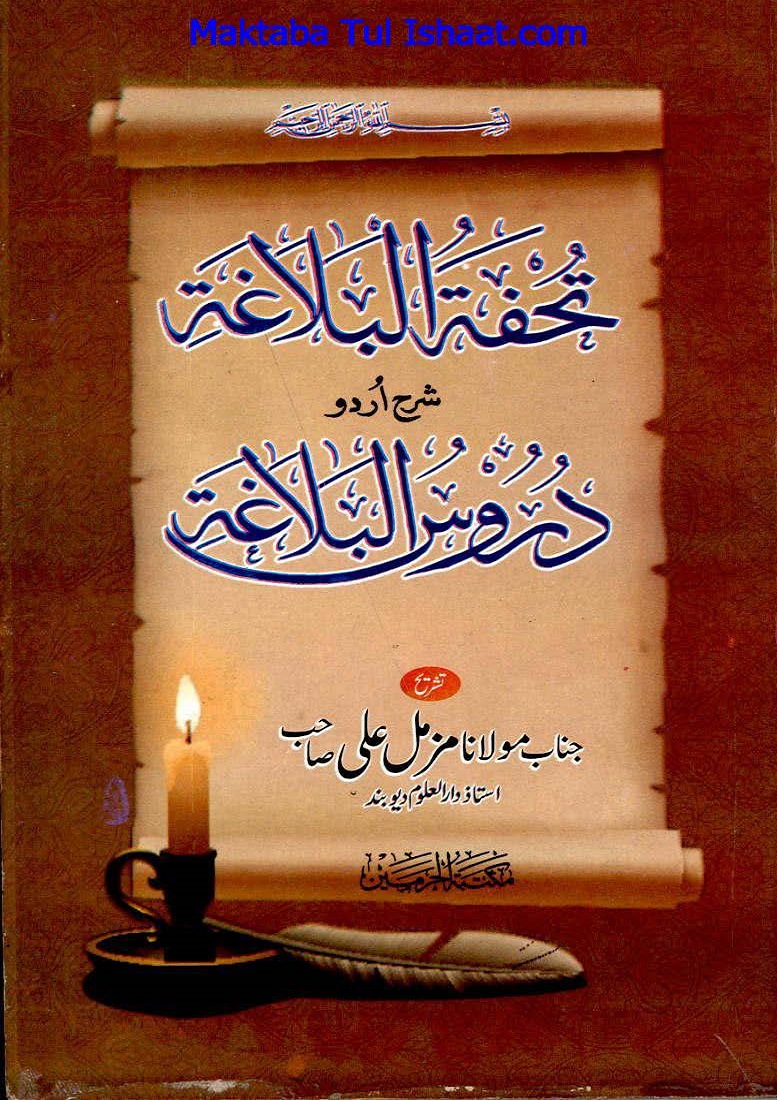 Maktaba Tul Ishaat.com
بسم الله الرحمن الرحيم
تُحْفَةُ الْبَلَاغَةِ
شرح اُردو
دُرُوْسُ الْبَلَاغَةِ
تشریح
جناب مولانا مزمل علی صاحب
استاذ دارالعلوم دیوبند
مکتبة الحرمین